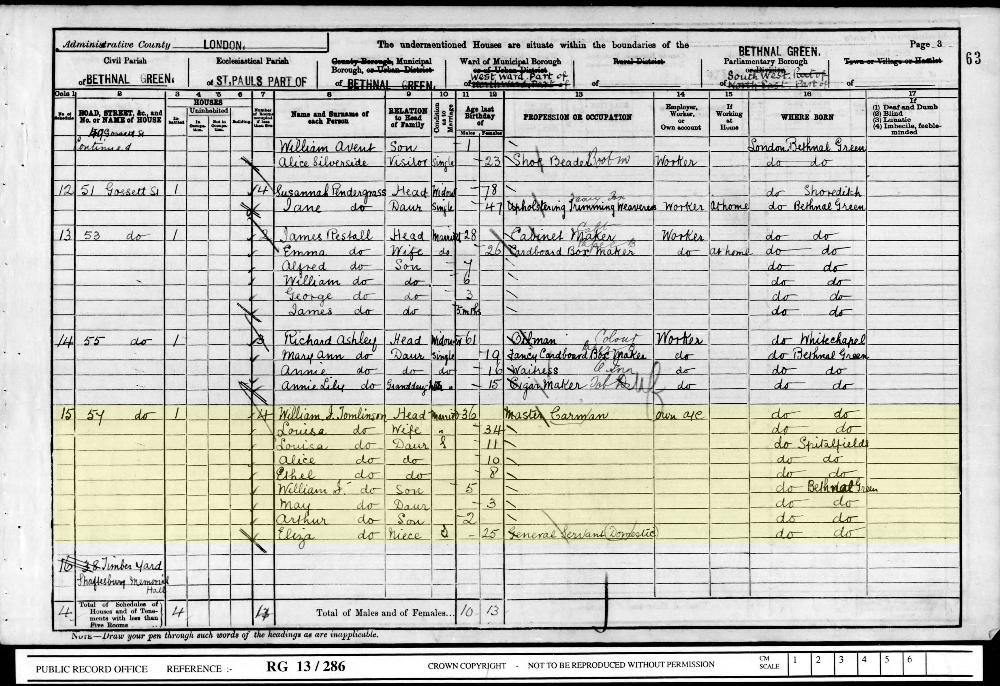 Administrative County LONDON. The undermentioned Houses are situate within the boundaries of the Page 3
63
Civil Parish of BETHNAL GREEN.
Ecclesiastical Parish of ST. PAULS PART OF
County Borough, Municipal Borough, or Urban District of BETHNAL GREEN.
Ward of Municipal Borough or of Urban District West Ward. Part of
Rural District of
Parliamentary Borough BETHNAL GREEN. South West. Part of North East. Part of
Town or Village or Hamlet of
Cols. 1 2 3 4 5 6 7 8 9 10 11 12 13 14 15 16 17
No. of Schedule
ROAD, STREET, &c., and No. or NAME of HOUSE
HOUSES
Inhabited
Uninhabited
In Occupation
Not in Occupation
Building
Name and Surname of each Person
RELATION to Head of Family
Condition as to Marriage
Age last Birthday of
Males Females
PROFESSION OR OCCUPATION
Employer, Worker, or Own account
If Working at Home
WHERE BORN
If (1) Deaf and Dumb (2) Blind (3) Lunatic (4) Imbecile, feeble-minded
49 Gossett St continued
William Avent Son 1 London Bethnal Green
Alice Silverside Visitor Single 23 Shoe Beader Worker do do
12 51 Gossett St 1 4 Susannah Pendergrass Head Widow 78 do Shoreditch
Jane do Daur Single 47 Upholstering Trimming Weaveress Worker At home do Bethnal Green
13 53 do 1 James Restall Head Married 28 Cabinet Maker Worker do do
Emma do Wife do 26 Cardboard Box Maker do At home do do
Alfred do Son 7 do do
William do do 6 do do
George do do 3 do do
James do do 5 mths do do
14 55 do 1 3 Richard Ashley Head Widower 61 Oilman Colour Worker do Whitechapel
Mary Ann do Daur Single 19 Fancy Cardboard Box Maker do do Bethnal Green
Annie do do do 16 Waitress do do do
Annie Lily do Granddaur 15 Cigar Maker do do do
15 57 do 1 4 William J. Tomlinson Head Married 36 Master Carman own a/c do do
Louisa do Wife " 34 do do
Louisa do Daur S 11 do Spitalfields
Alice do do 10 do do
Ethel do do 8 do do
William J. do Son 5 do Bethnal Green
May do Daur 3 do do
Arthur do Son 2 do do
Eliza do Niece - 25 General Servant (Domestic) do do
16 38 Timber Yard
Shaftesbury Memorial Hall
4 Total of Schedules of Houses and of Tenements with less than Five Rooms 4 Total of Males and of Females... 10 13
NOTE—Draw your pen through such words of the headings as are inapplicable.
PUBLIC RECORD OFFICE REFERENCE :- RG 13 / 286 CROWN COPYRIGHT - NOT TO BE REPRODUCED WITHOUT PERMISSION CM SCALE 1 2 3 4 5 6